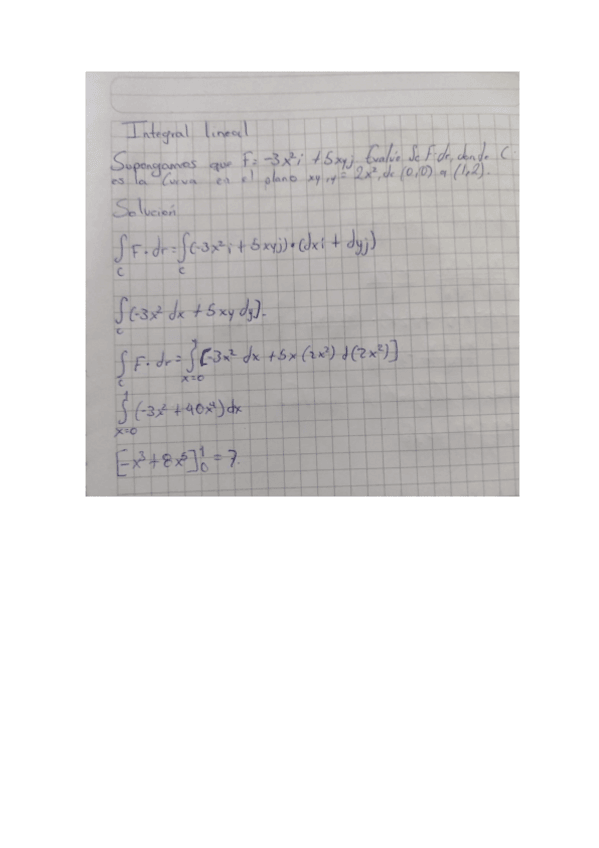 Integral lineal
Supongamos que F = -3x²i + 5xyj Evalúe ∫c F·dr, donde C
es la Curva en el plano xy, y = 2x², de (0,0) a (1,2).
Solución
∫c F·dr = ∫c (-3x²i + 5xyj)·(dxi + dyj)
∫c (-3x² dx + 5xy dy).
∫c F·dr = ∫x=0^1 [-3x² dx + 5x(2x²) d(2x²)]
∫x=0^1 (-3x² + 40x⁴)dx
[-x³ + 8x⁵]₀¹ = 7.